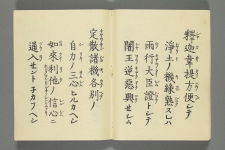 釋迦韋提方便シテ
淨土ノ機緣熟スレハ
雨行大臣證トシテ
闍王逆惡興セシム
定散諸機各別ノ
自力ノ三心ヒルカヘシ
如來利他ノ信心ニ
通入セムトネカフヘシ